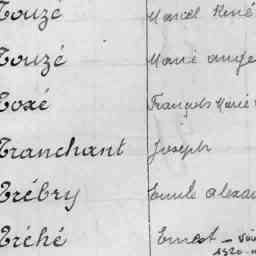 Touzé Marcel René
Touzé Marie Ange
Toxé François Marie
Tranchant Joseph
Trébry Emile
Tréhé Ernest